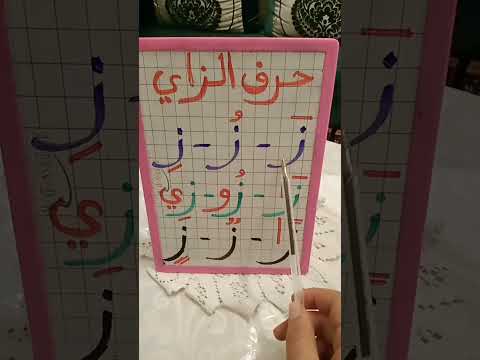 حرف الزاي
زَ - زُ - زِ
زَا - زُو - زِي
زًا - زٌ - زٍ